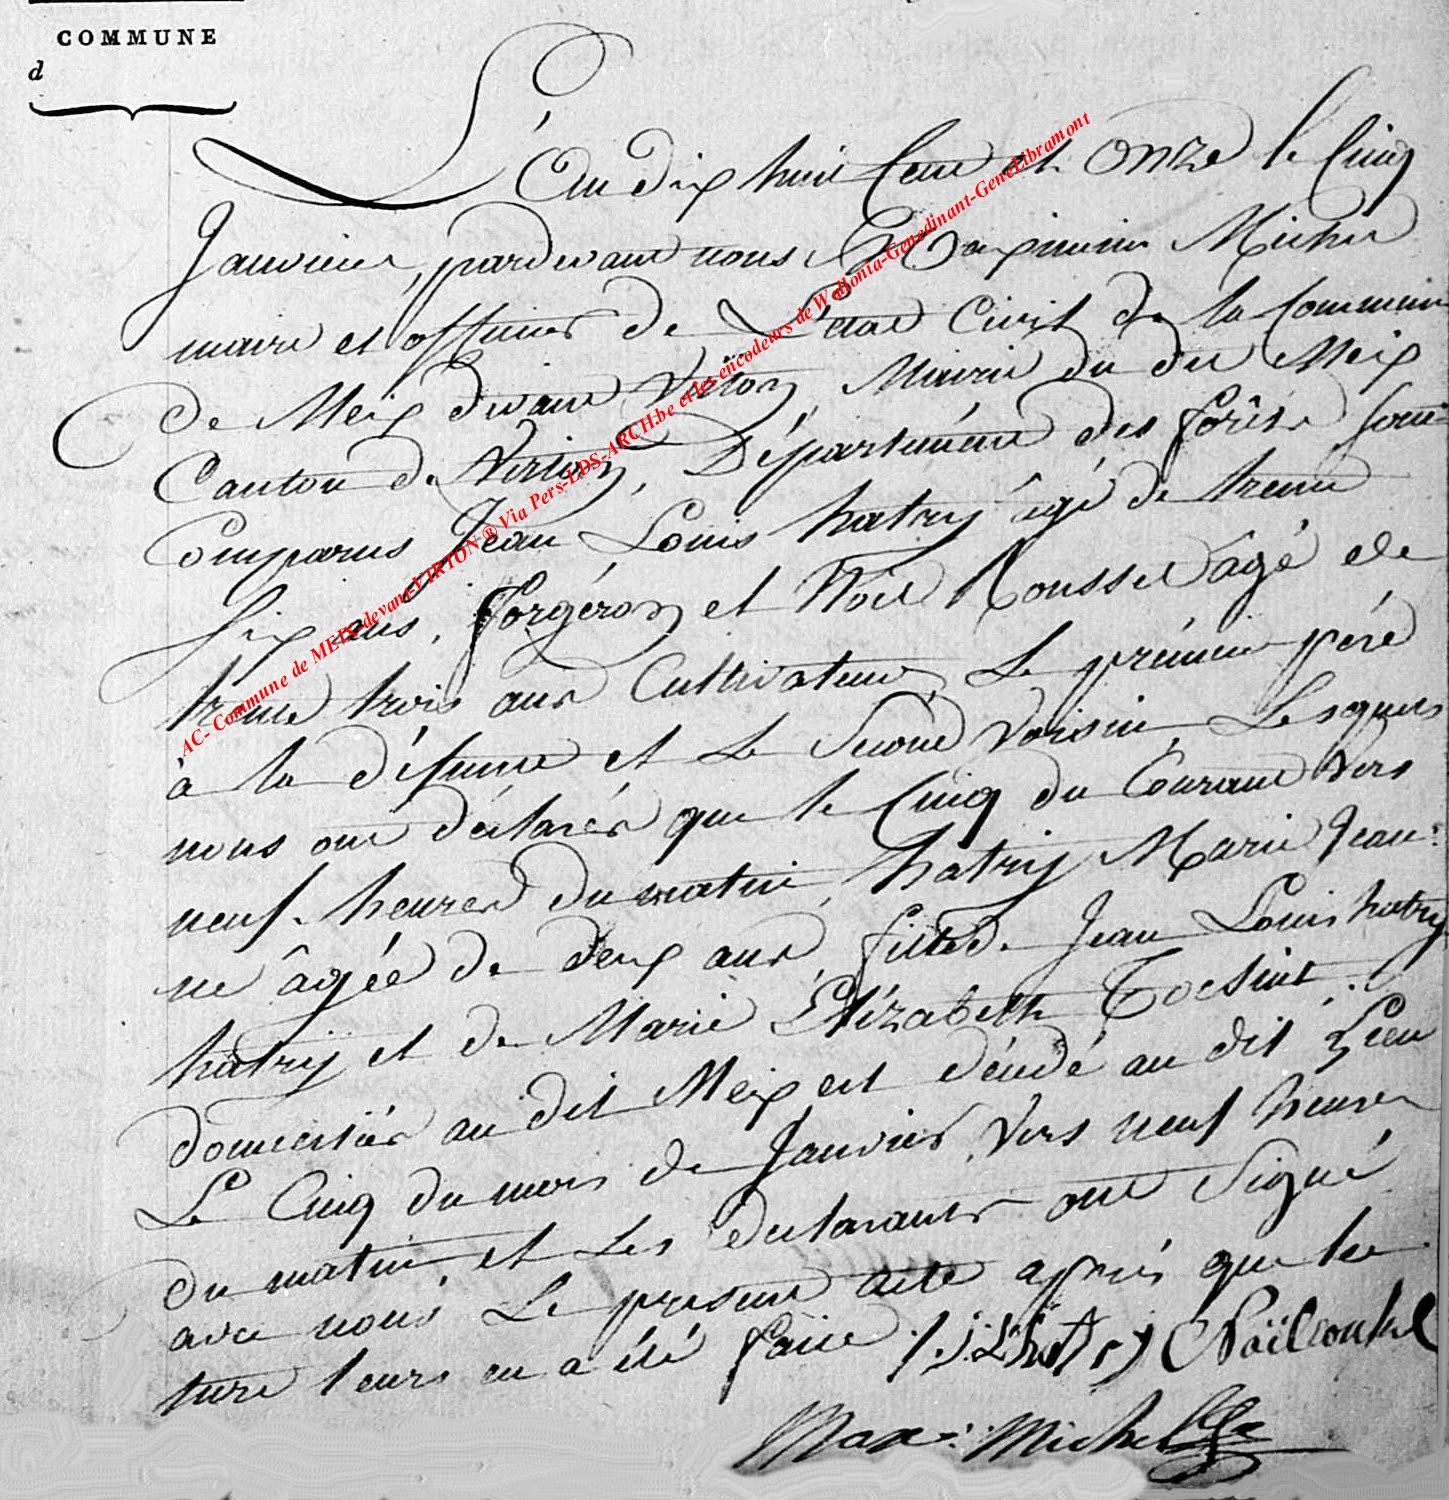 COMMUNE
d
L'An dix huit Cent et onze le Cinq
Janvier, pardevant nous Maximin Michel
maire et officier de L'état Civil de la Commune
de Meix devant Virton Mairie du dit Meix
Canton de Virton, Département des forêts sont
Comparus Jean Louis hatry âgé de trente
Six ans, forgéron et Noel Roussel âgé de
trente trois ans Cultivateur, Le prémier péré
à la défunte et Le Second Voisin, Lesquels
nous ont déclarés que le Cinq du Courant Vers
neuf heures du matin, hatry Marie Jean:
ne âgée de deux ans, fille de Jean Louis hatry
hatry et de Marie Elizabeth Tocsint
domiciliés au dit Meix est décédé au dit Lieu
Le Cinq du mois de Janvier, Vers neuf heures
du matin, et Les declarants ont Signé
avec nous Le present acte aprés que lec
ture leurs en a été faite /. J: L: hatry Noël rousel
Max: Michel
AC- Commune de MEIX-devant-VIRTON ® Via Pers-LDS-ARCH.be et les encodeurs de Wallonia-Genedinant-GeneLibramont